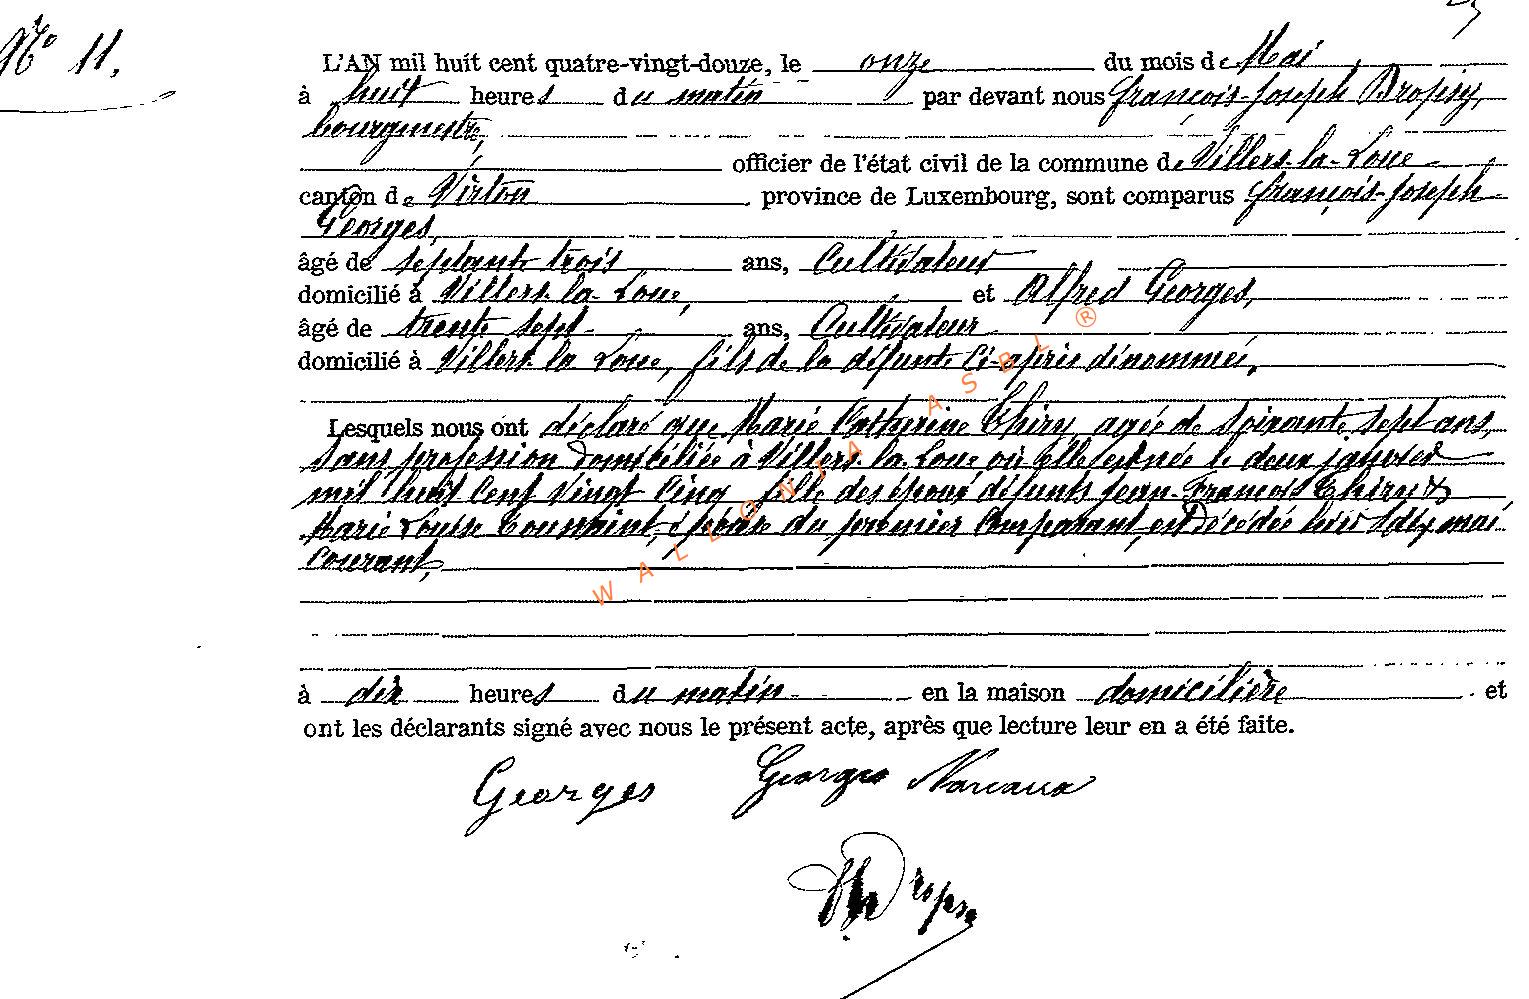 N° 11.
L'AN mil huit cent quatre-vingt-douze, le onze du mois de Mai,
à huit heures du matin par devant nous françois-Joseph Dropsy,
bourgmestre,
officier de l'état civil de la commune de Villers-la-Loue
canton de Virton province de Luxembourg, sont comparus françois-Joseph
Georges,
âgé de septante trois ans, Cultivateur
domicilié à Villers-la-Loue, et Alfred Georges,
âgé de trente sept ans, Cultivateur
domicilié à Villers-la-Loue, fils de la défunte ci-après dénommée,
Lesquels nous ont déclaré que Marie Catherine Thiry, agée de soixante sept ans,
sans profession domiciliée à Villers-la-Loue où elle est née le deux janvier
mil huit cent vingt cinq, fille des époux défunts Jean-François Thiry &
Marie Louise Toussaint, épouse du premier comparant, est décédée hier dix mai
courant,
à dix heures du matin en la maison domicilière et
ont les déclarants signé avec nous le présent acte, après que lecture leur en a été faite.
Georges Georges
Dropsy
WALLONIA ASBL ®